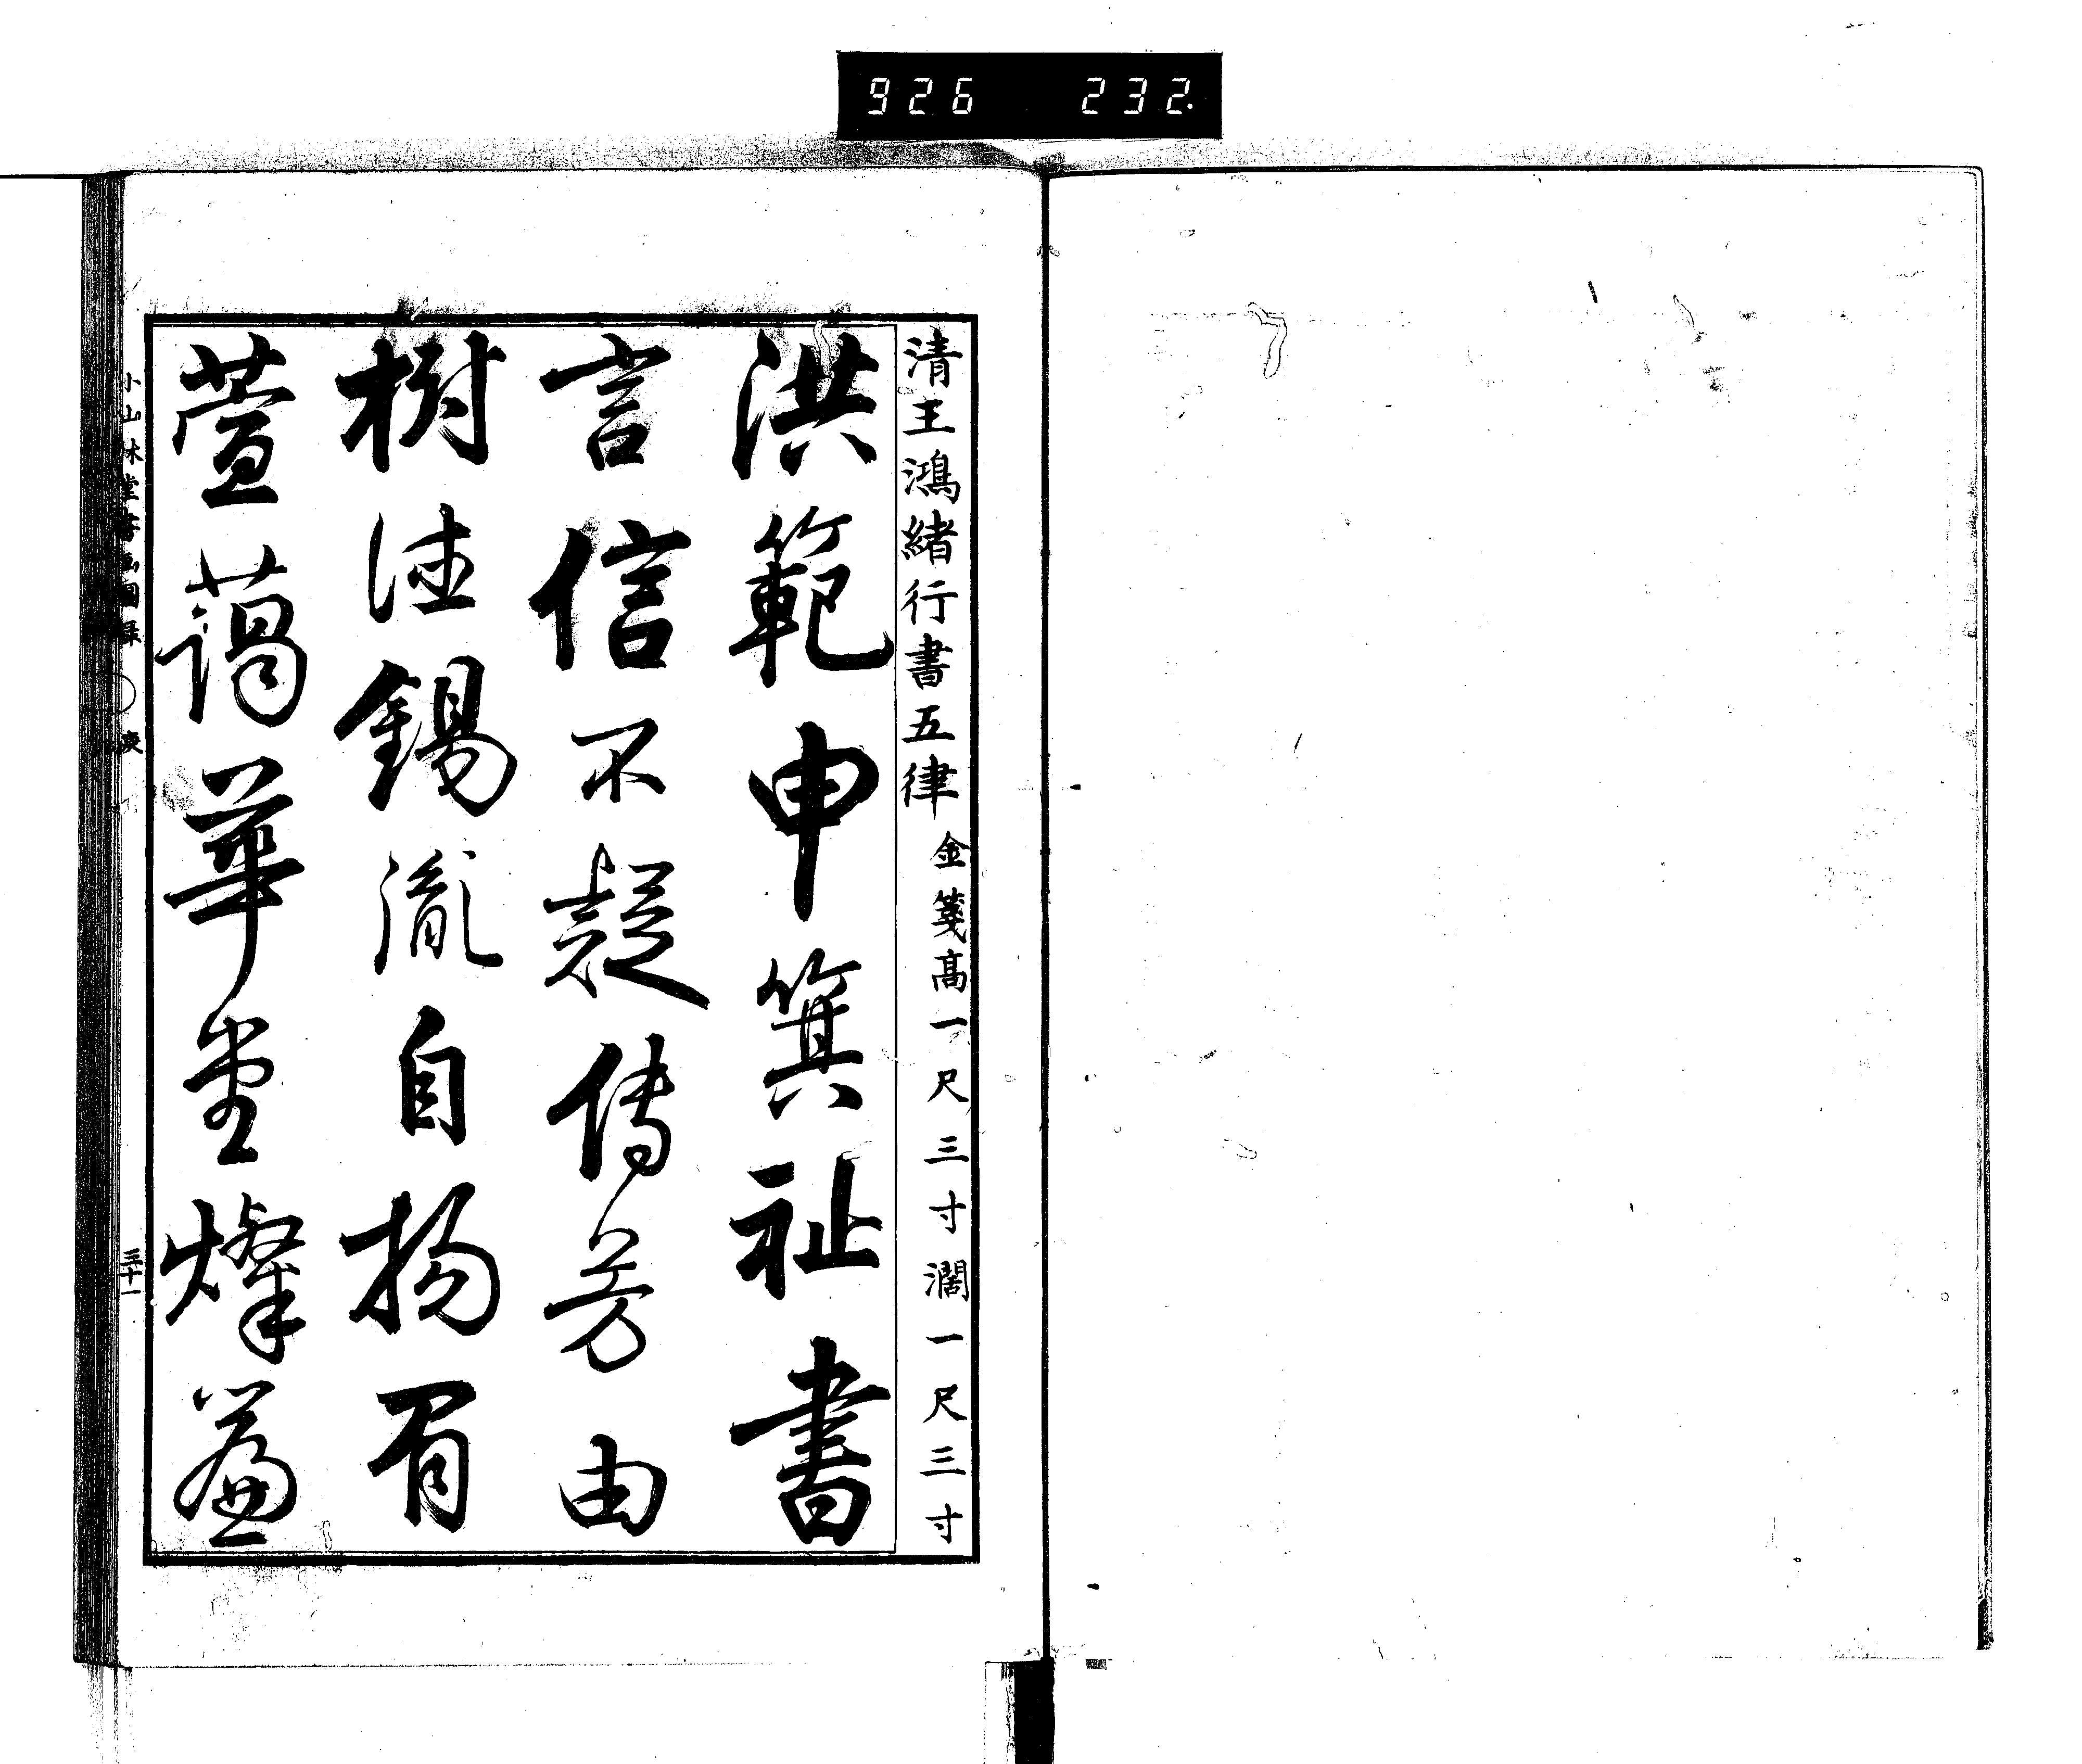 926 232.
清王鴻緒行書五律 金箋高一尺三寸濶一尺三寸
洪範申箕祉書
言信不疑傳芳由
樹德錫胤自揚眉
萱藹華堂燦蘭
小山林堂書画図録 庚
三十一